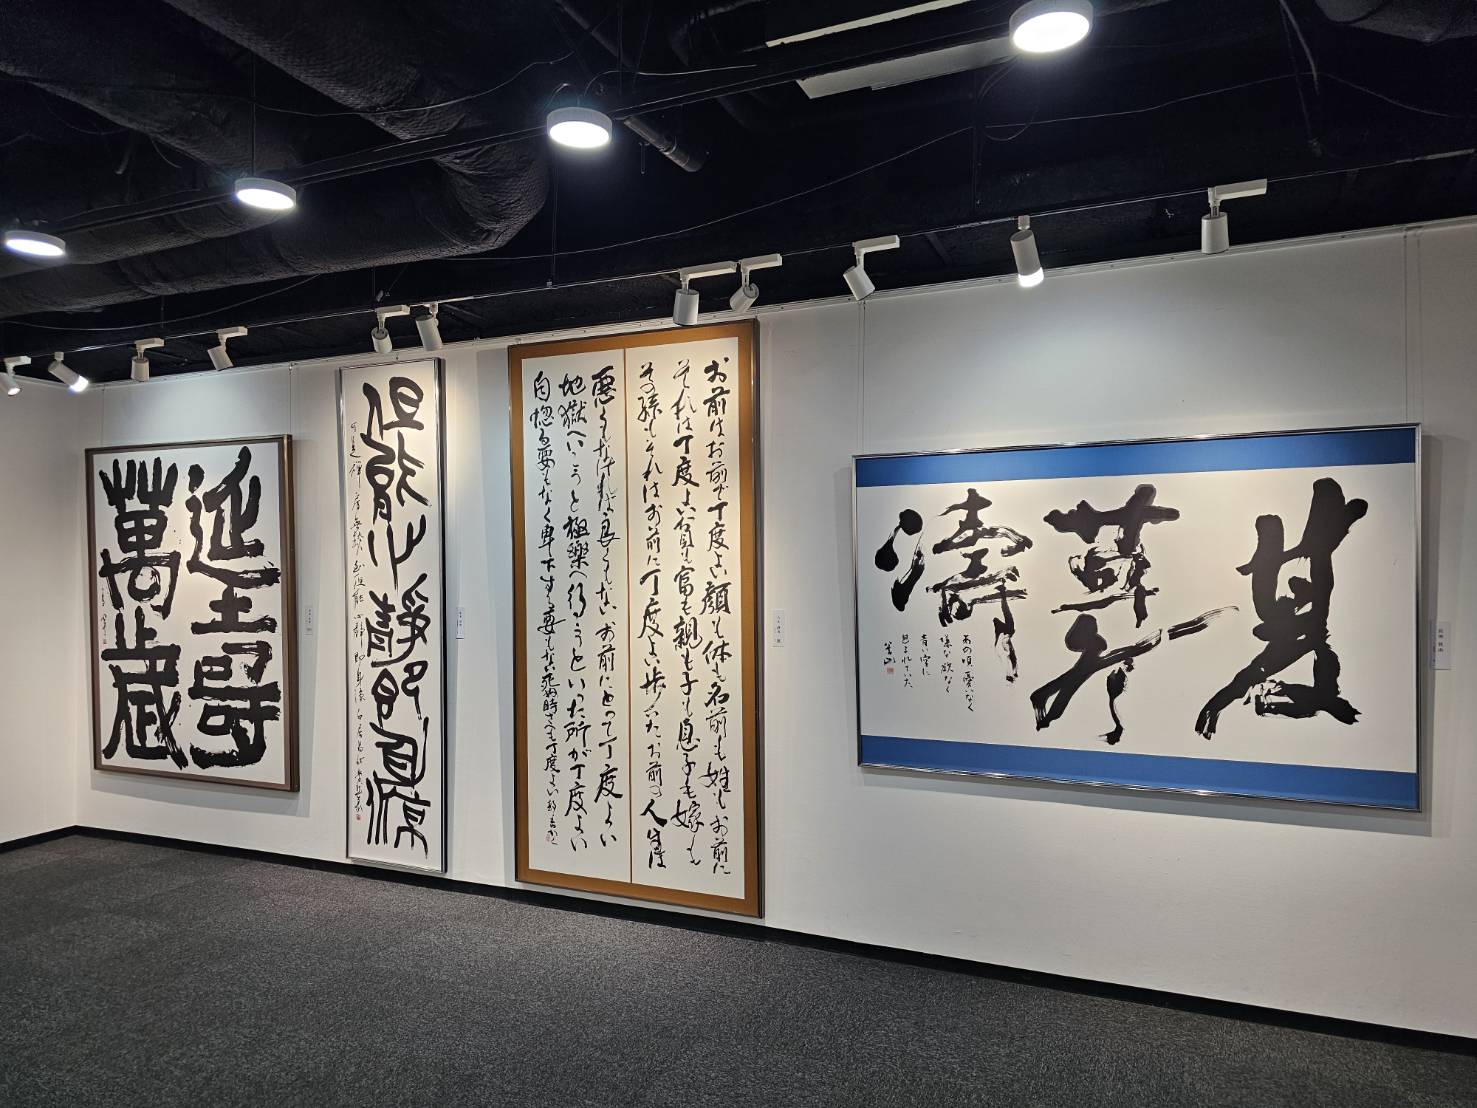 延壽
萬歳
但能心靜即身凉
可是禅房無熱到但能心静即身凉白居易
お前はお前で丁度よい顔も体も名前も姓もお前に
それは丁度よい貧も富も親も子も息子も嫁も
その孫もそれはお前に丁度よい歩いたお前の人生は
悪くもなければ良くもないお前にとって丁度よい
地獄へいこうと極楽へ行こうといった所が丁度よい
自惚る要もなく卑下する要もない死ぬ時さえも丁度よい
夏
濤
あの頃憂いなく
嫌な欲なく
青い空に
包まれていた